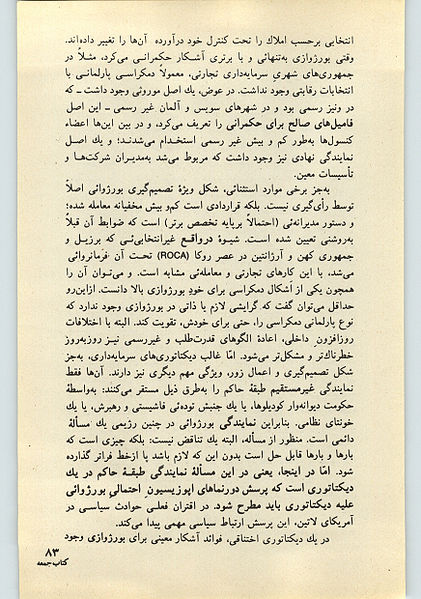 انتخابی برحسب املاك را تحت کنترل خود درآورده آن‌ها را تغییر داده‌اند.
وقتی بورژوازی به‌تنهائی و با برتری آشـکار حکمرانـی می‌کرد، مثـلاً در
جمهوری‌های شهری سرمایه‌داری تجارتی، معمولاً دمکراسـی پارلمانـی با
انتخابات رقابتی وجود نداشت. در عوض، یك اصل موروثی وجود داشت ـ که
در ونیز رسمی بود و در شهرهای سویس و آلمان غیر رسمی ـ این اصل
فامیل‌های صالح برای حکمرانی را تعریف می‌کرد، و در بین این‌ها اعضاء
کنسول‌ها به‌طور کم و بیش غیر رسمی استخـدام می‌شدنـد؛ و یك اصـل
نمایندگی نهادی نیز وجود داشت که مربوط می‌شد به‌مدیـران شرکت‌هـا و
تأسیسات معین.
به‌جز برخی موارد استثنائی، شکل ویژۀ تصمیم‌گیری بورژوائی اصلاً
توسط رأی‌گیری نیست. بلکه قراردادی است کم‌و بیش مخفیانه معامله شده؛
و دستور مدیرانه‌ئی (احتمالاً برپایه تخصص برتر) است که ضوابط آن قبلاً
به‌روشنی تعیین شده است. شیـوۀ درواقـع غیرانتخابی‌ئـی که برزیـل و
جمهوری کهن و آرژانتین در عصر روکا (ROCA) تحـت آن فرمانروائی
می‌شد، با این کارهای تجارتی و معامله‌ئی مشابه است. و می‌توان آن را
همچون یکی از أشکال دمکراسی برای خود بورژوازی بالا دانست. ازاین‌رو
حداقل می‌توان گفت که گرایشی لازم یا ذاتی در بورژوازی وجود ندارد که
نوع پارلمانی دمکراسی را، حتی برای خودش، تقویت کند. البته با اختلافات
روزافزون داخلی، اعادۀ الگوهای قدرت‌طلب و غیررسمی نیـز روزبه‌روز
خطرناك‌تر و مشکل‌تر می‌شود. امّا غالب دیکتاتوری‌های سرمایه‌داری، به‌جز
شکل تصمیم‌گیری و اعمال زور، ویژگی مهم دیگری نیز دارند. آن‌ها فقط
نمایندگی غیرمستقیم طبقۀ حاکم را به‌طرق ذیل مستقر می‌کنند: به‌واسطۀ
حکومت دیوانه‌وار کودیلوها، یا یك جنبش توده‌ئی فاشیستی و رهبرش، یا یك
خونتای نظامی. بنابراین نمایندگی بورژوائی در چنین رژیمی یك مسألۀ
دائمی است. منظور از مسأله، البته یك تناقض نیست: بلکه چیزی است که
بارها و بارها قابل حل است بدون این که لازم باشد پا ازخط فراتر گذارده
شود. امّا در اینجا، یعنی در این مسألۀ نمایندگی طبقـۀ حاکم در یك
دیکتاتوری است که پرسش دورنماهای اپوزیسیون احتمالی بورژوائی
علیه دیکتاتوری باید مطرح شود. در اقتران فعلـی حوادث سیاسـی در
آمریکای لاتین، این پرسش ارتباط سیاسی مهمی پیدا می‌کند.
در یك دیکتاتوری اختناقی، فوائد آشکار معینی برای بورژوازی وجود
۸۳
کتاب جمعه